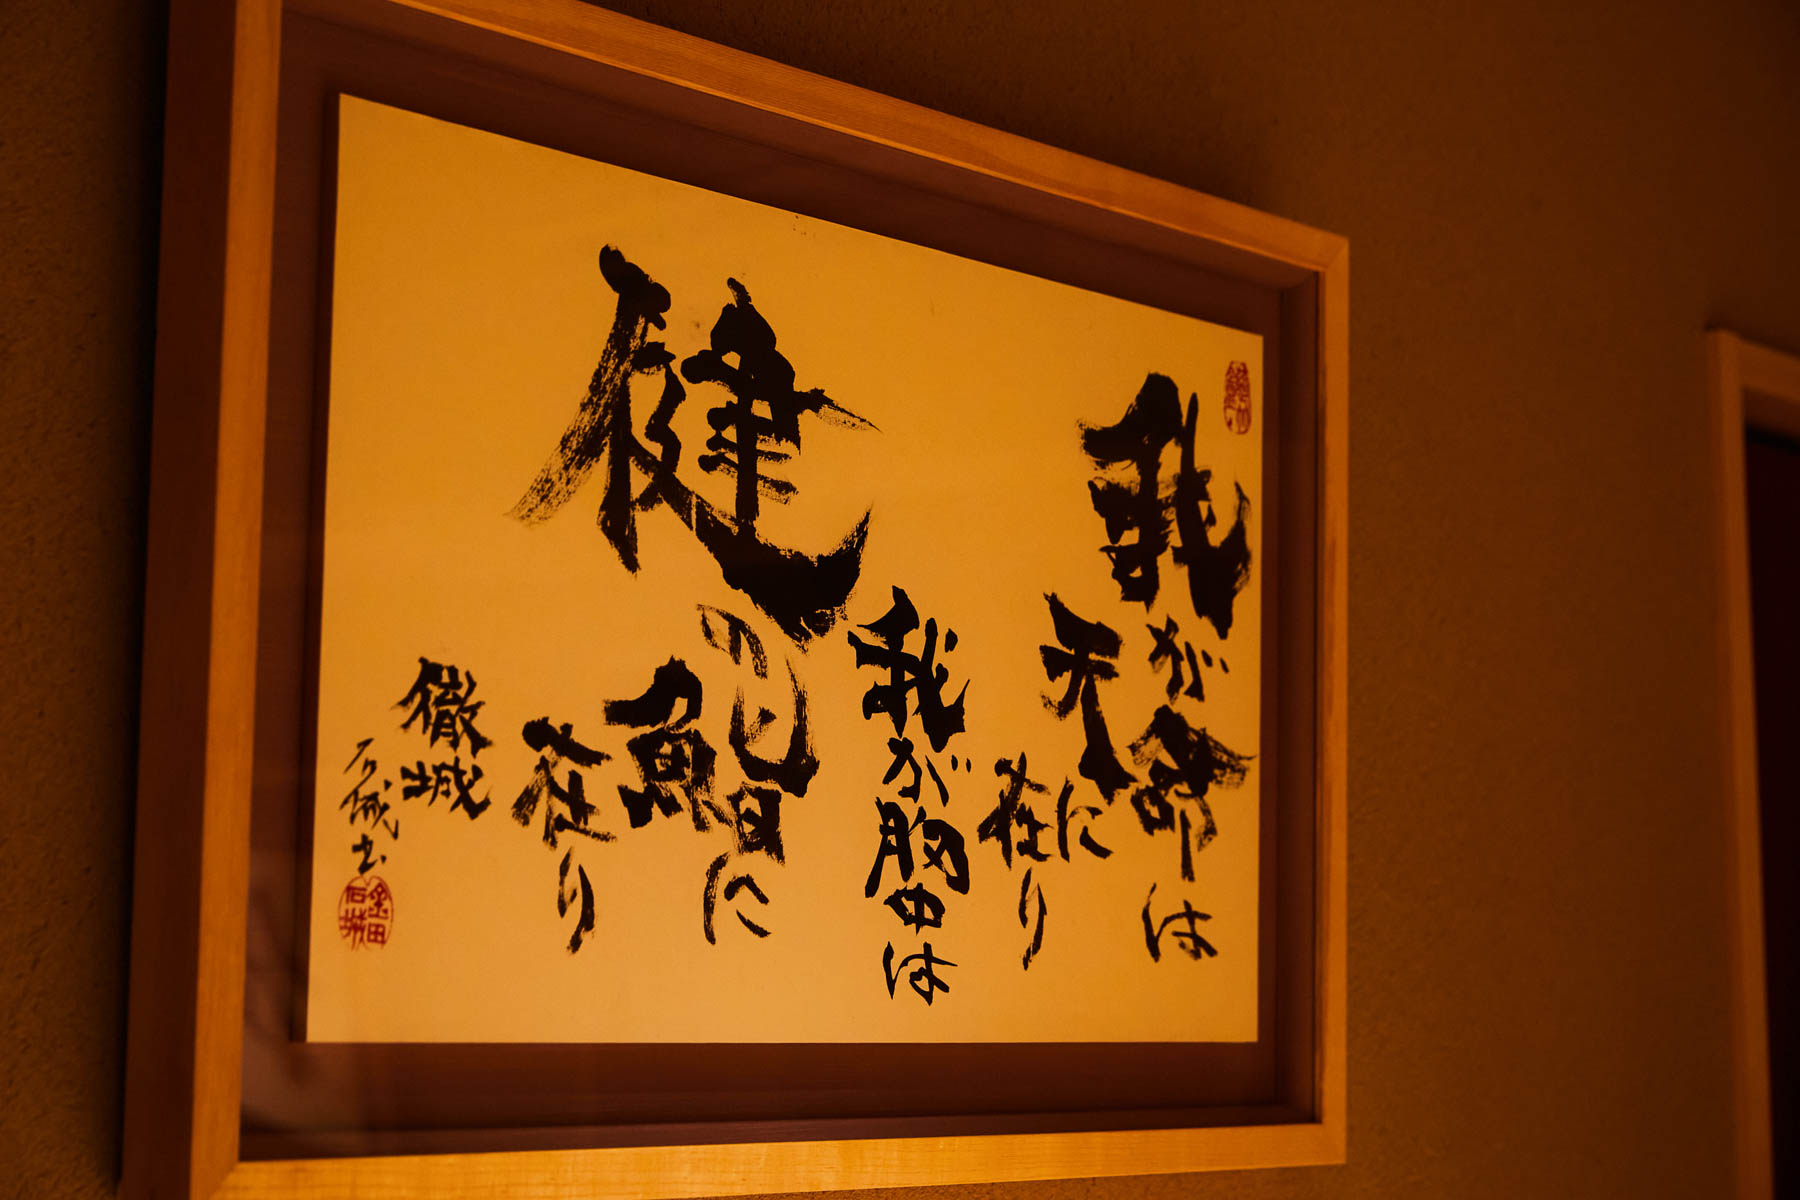 我が命は
天に
在り
我が胸中は
健の鮨に
在り
徹城
石城書
金田
石城